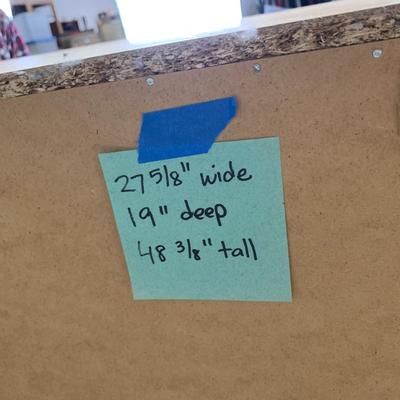 27 5/8" wide
19" deep
48 3/8" tall